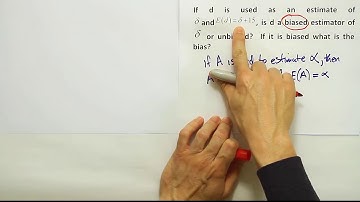 If d is used as an estimate of
δ and E(d) = δ + 15, is d a biased estimator of
δ or unbiased? If it is biased what is the
bias?
If A is to estimate α, then
A E(A) = α